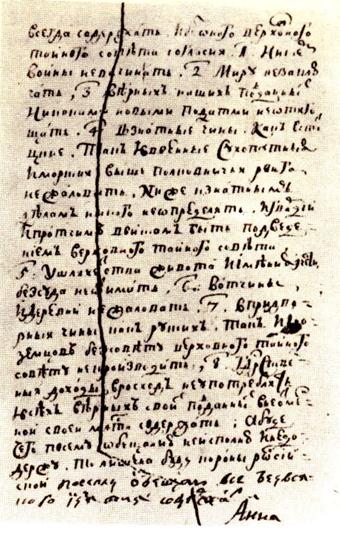 всегда содержать. И безоного верховного
тайного совѣта согласия. 1. Ниское
воины невсчинать. 2 Миру незаклю
чать, 3 вѣрныхъ нашихъ подданныхъ
никакими новыми податми неотяго
щать. 4. Взнатные чины. Какъ встат
цкие. Такъ ивоенные сухопутные
иморские выше полковничья ранга
нежаловать. Ниже кзнатнымъ
дѣламъ никого неопределять. игвардии
ипротчимъ полкамъ быть подведе
ниемъ верховного тайного совѣта
5. Ушляхетства живота иимѣния ичести
безсуда неотимать. 6. Вотчины,
идеревни нежаловать. 7. Впридво-
рные чины какъ руских. Такъ ино
земцовъ безсовѣту верховного тайного
совѣту непроизводить, 8, Государствен
ные доходы врасход неупотреблять
ивсѣхъ вѣрныхъ своихъ подданныхъ внеотмѣн
ной своей милости содержать; Абуде
чего посему обещанию неисполню инедо
держу. То лишена буду короны россий
ской посему обещаю все безвся
кого содержать
Анна